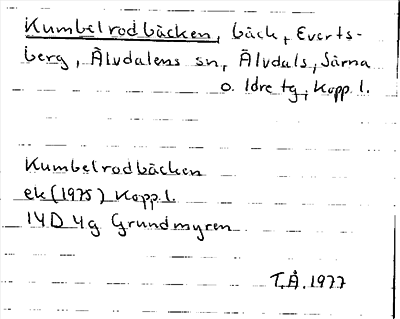 Kumbelrodbäcken, bäck, Everts-
berg, Älvdalens sn, Älvdals, Särna
o. Idre tg, Kopp. l.
Kumbelrodbäcken
ek (1975) Kopp. l.
14D 4g Grundmyren
T.Å. 1977